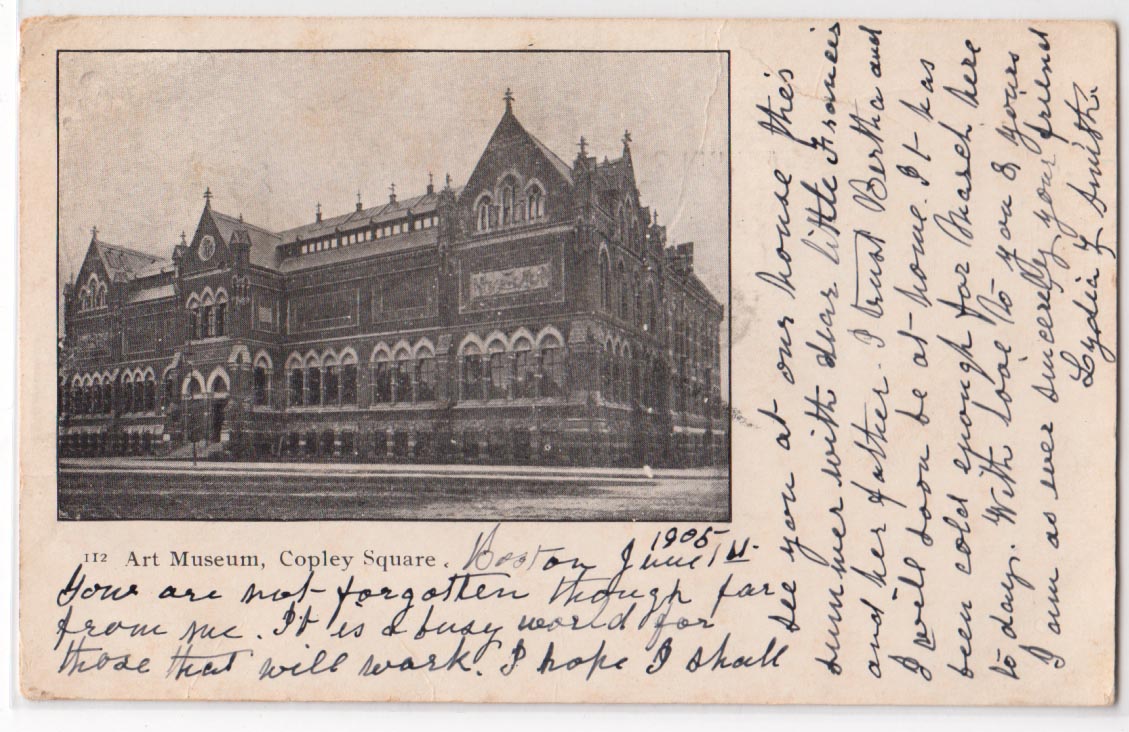 112 Art Museum, Copley Square.
Boston June 1st 1905
Your are not forgotten though far
from me. It is a busy world for
those that will work. I hope I shall
see you at our house this
summer with dear little Francis
and her father. I trust Bertha and
I will soon be at home. It has
been cold enough for March here
to day. With love to you & yours
I am as ever sincerely your friend
Lydia Y Smith